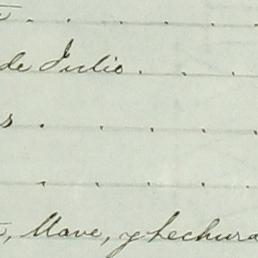 de Julio . . .
s . . . . .
. . . .
, Llave, y hechura